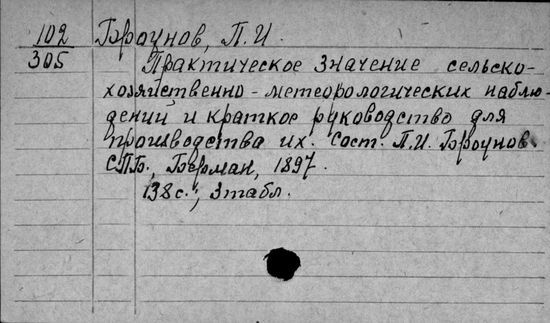 102 Броунов, П. И.
305 Практическое значение сельско-
хозяйственно-метеорологических наблю-
дений и краткое руководство для
производства их. Сост. П.И. Броунов.
СПБ., Берман, 1897.
138 с.; 3 табл.